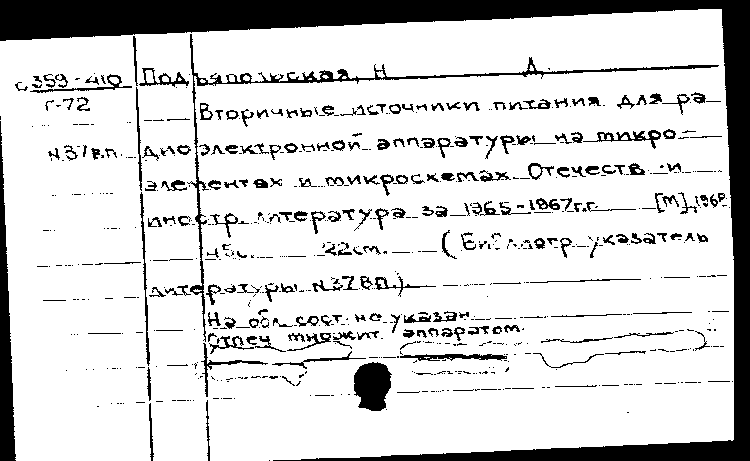 с359-410 Подъяпольская, Н Д.
Г-72 Вторичные источники питания для ра
N.37в.п. диоэлектронной аппаратуры на микро-
элементах и микросхемах Отечеств и
иностр. литература за 1965-1967г.г. [М],
45с. 22см. (Библиогр указатель
литературы N.37ВП.).
На обл. сост. не указан
Отпеч множит. аппаратом.